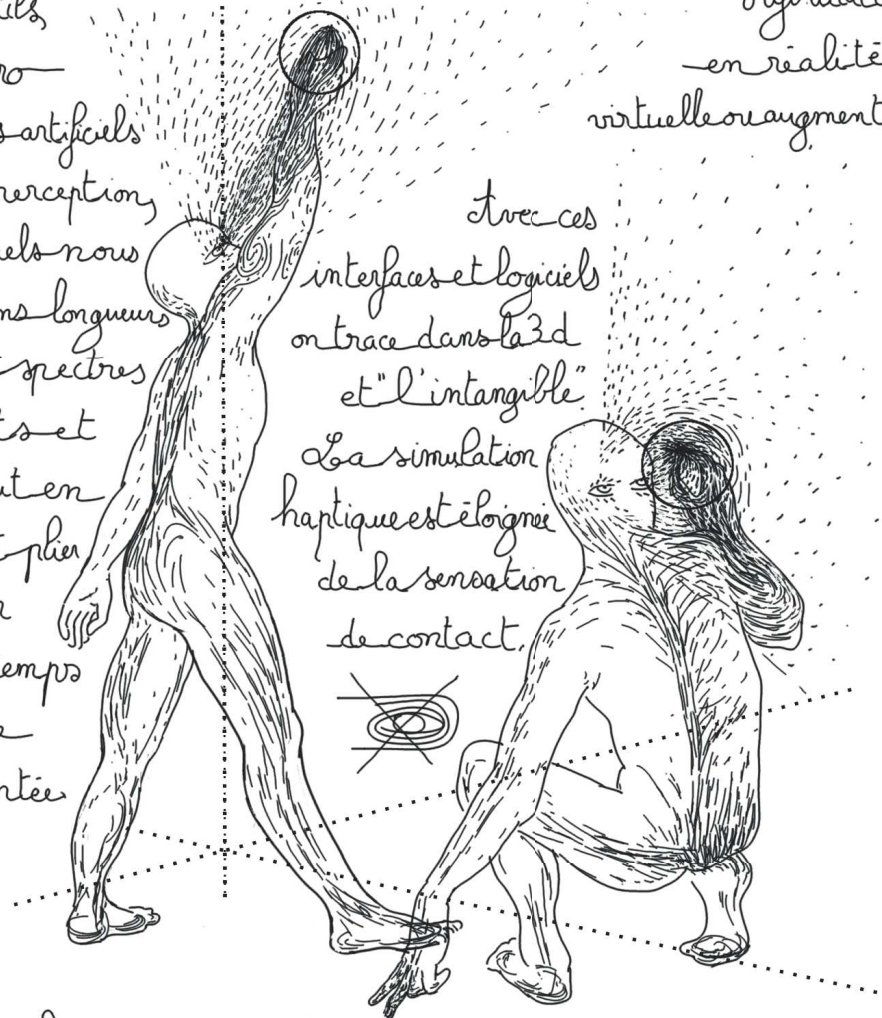 ro
s artificiels
perception,
els nous
ns longueurs
spectres
ts et
ut en
plier
emps
ntée.
en réalité
virtuelle ou augment
Avec ces
interfaces et logiciels
on trace dans la 3d
et "l'intangible"
La simulation
haptique est éloignée
de la sensation
de contact.